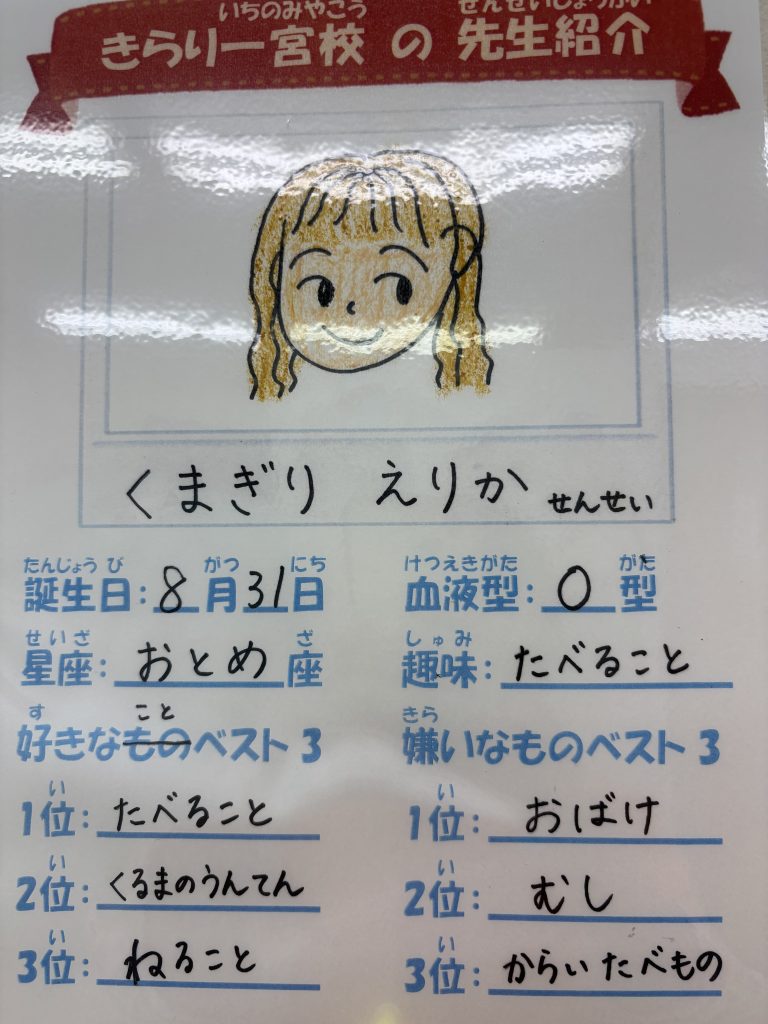 いちのみやこう せんせいしょうかい
きらり一宮校 の 先生紹介
くまぎり えりか せんせい
たんじょう び がつ にち けつえきがた がた
誕生日:8月31日 血液型:O型
せいざ ざ しゅみ
星座:おとめ座 趣味:たべること
す こと きら
好きなものベスト3 嫌いなものベスト3
い い
1位:たべること 1位:おばけ
い い
2位:くるまのうんてん 2位:むし
い い
3位:ねること 3位:からいたべもの